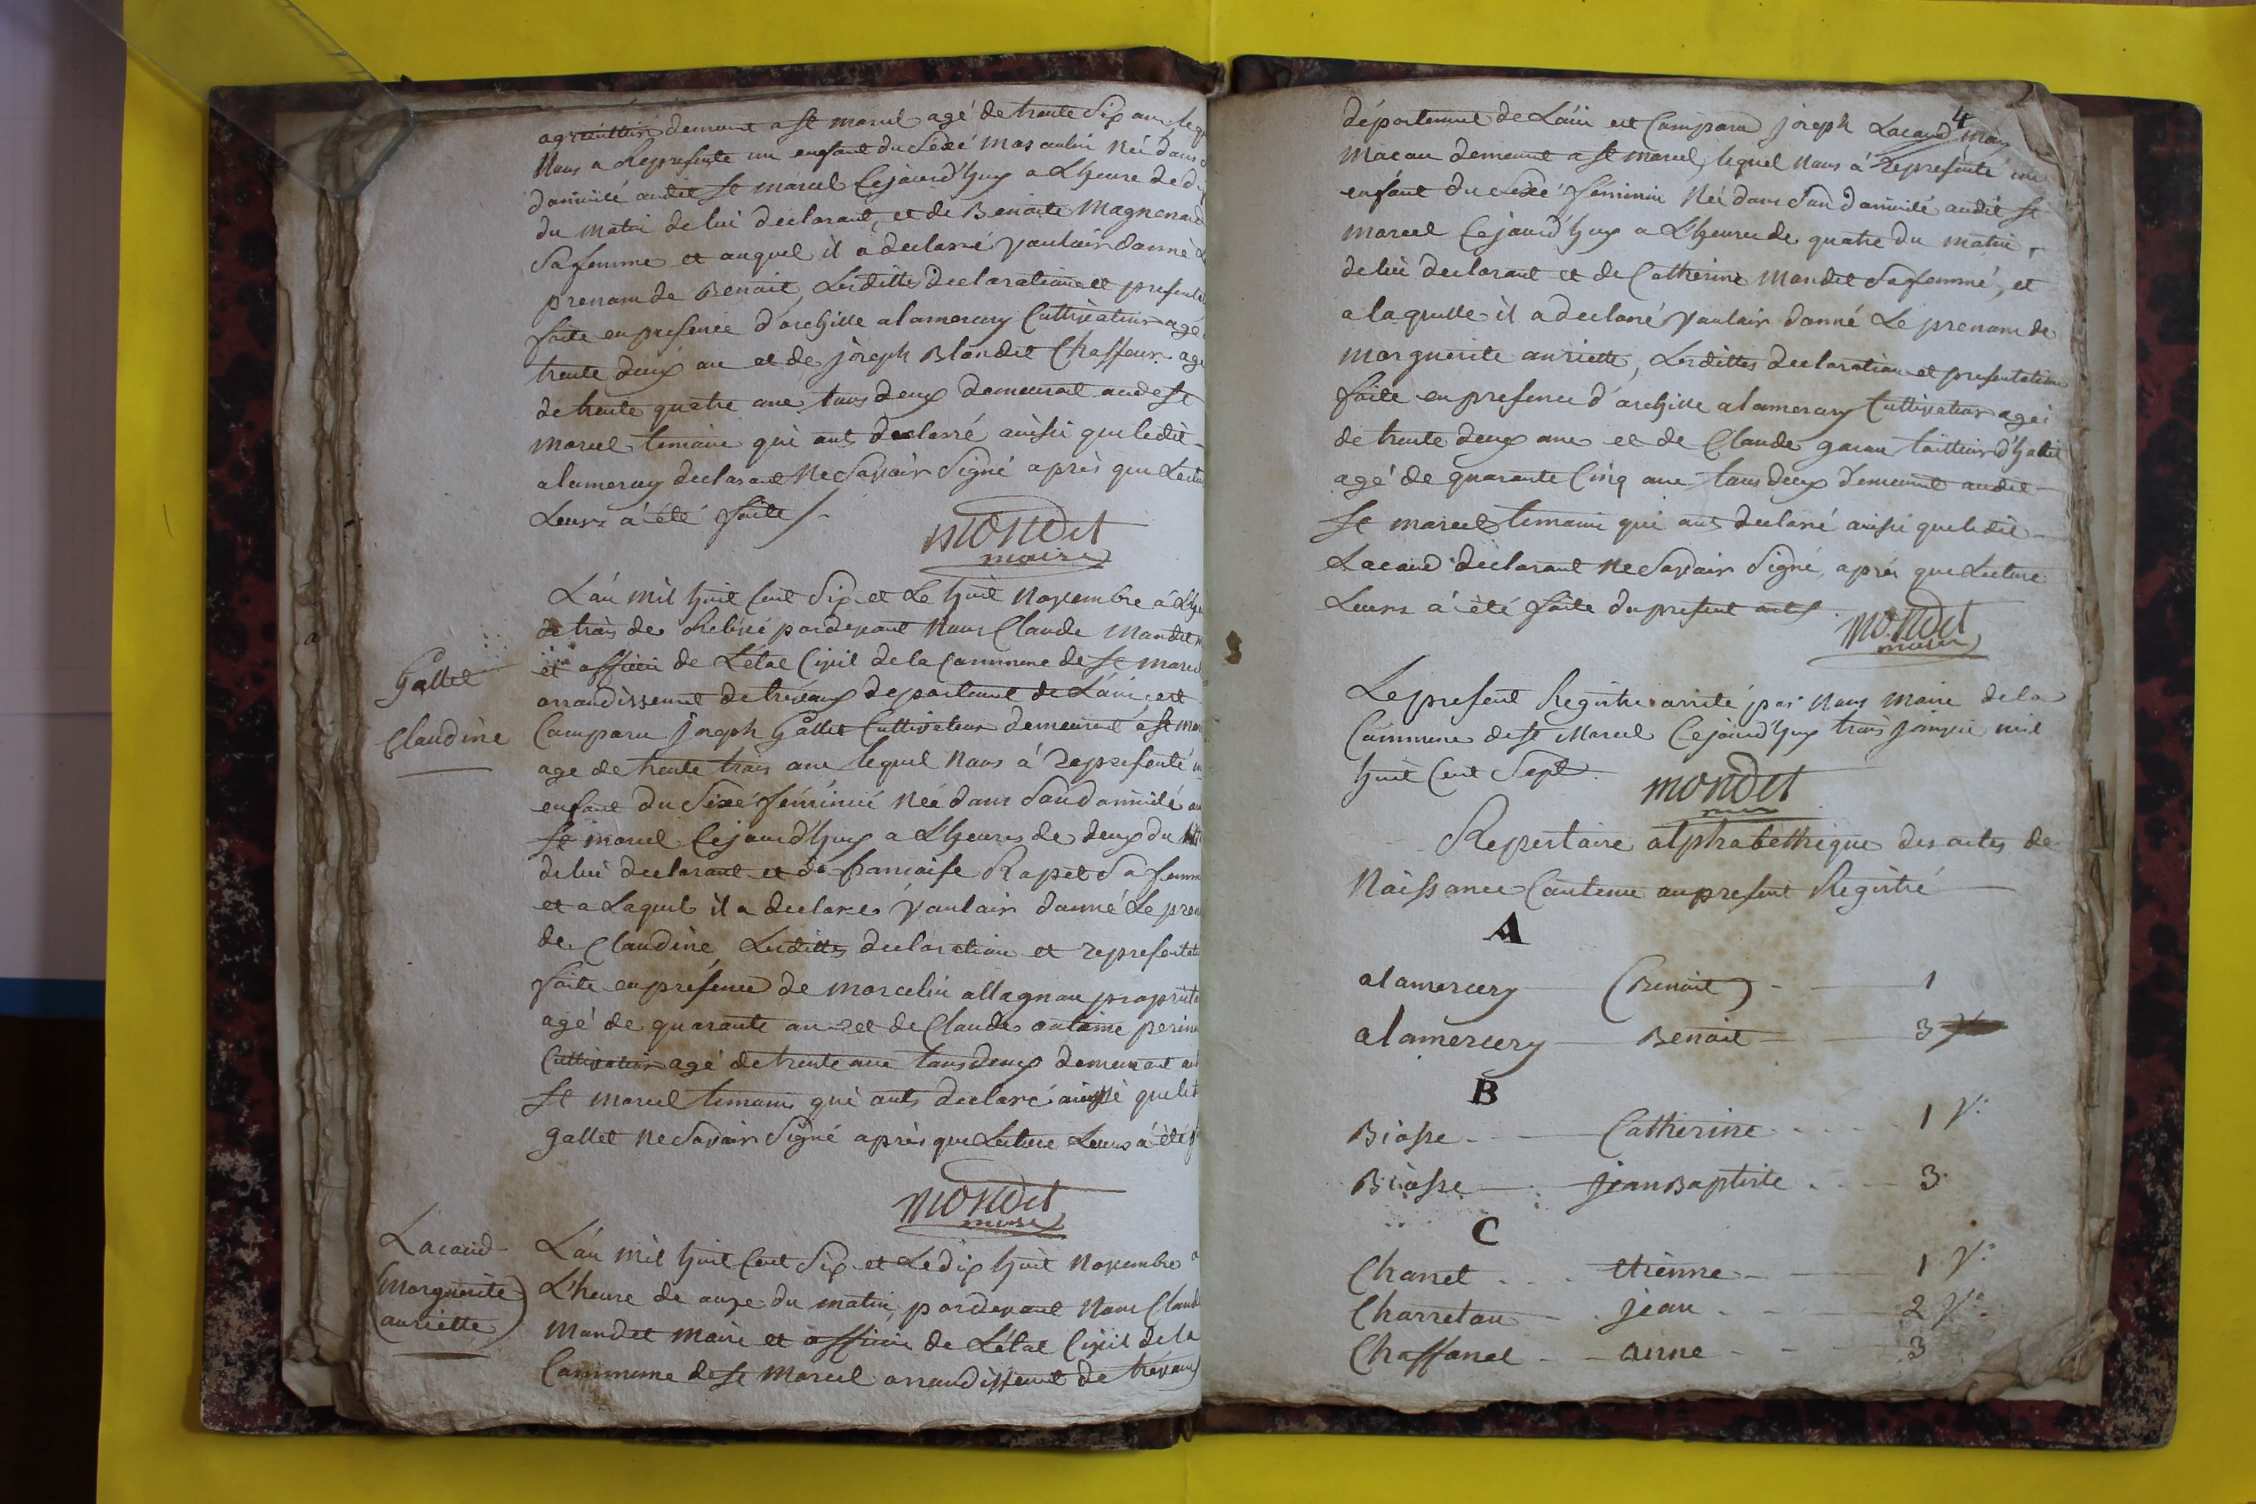 agriculteur demeurant a St marcel agé de trente Six ans lequel
Nous a Representé un enfant du Sexé Masculin Né dans
domicilé audit St marcel Cejourd'huy a Lheure de
du matin de lui declarant, et de Benoite Magnenard
Sa femme et auquel il a declaré vouloir donné Le
prenom de Benoit, Lesdittes declaration et presentation
faite en presence d'archille alamercery Cultivateur agé
trente deux ans et de joseph Blondet Chasseur agé
de trente quatre ans tous deux demeurant aud St
Marcel temoins qui ont declarré ainssi que ledit
alamercery declarant Ne Savoir Signé après que Lecture
Leurs a été faite
Mondet
maire
Gallet
Claudine
L'an mil huit Cent Six et Le huit Novembre à L'heure
de trois de Relevé pardevant Nous Claude Mondet
et officier de L'état Civil de la Commune de St Marcel
arrondissement de trévoux departement de L'ain, est
Comparu joseph Gallet Cultivateur demeurant a St Marcel
age de trente trois ans lequel Nous à representé un
enfant du Sexé féminin Née dans Son domicilé au
St marcel Cejourd'huy a Lheures de deux du
de lui declarant et de francoise Rapet Sa femme
et a Laquel il a declaré vouloir donné Le prenom
de Claudine, Lesdittes declaration et representation
faite en présence de marcelin allagnon propriétaire
agé de quarante ans et de Claude antoine
Cultivateur agé de trente ans tous deux demeurant aud
St marcel temoins qui onts declaré ainssi que ledit
gallet Ne Savoir Signé après que Lecture Leurs a été
Mondet
maire
Lacand
Marguerite
auriette
L'an mil huit Cent Six et Le dix huit Novembre a
L'heure de onze du matin, pardevant Nous Claude
Mondet Maire et officier de L'état Civil de la
Commune de St Marcel arrondissement de trévoux
4
département de L'ain est Comparu joseph Lacand
Macon demeurant a St marcel, lequel Nous à representé une
enfant du Sexé féminin Née dans Son domicilé audit St
marcel Cejourd'huy a L'heures de quatre du matin,
de lui declarant et de Catherine Mondet Sa femmé, et
a laquelle il a declaré vouloir donné Le prenom de
Marguerite auriette, Lesdittes declaration et presentation
faite en presence d'archille alamercery Cultivateur agé
de trente deux ans et de Claude gacon tailleur d'habit
agé de quarante Cinq ans tous deux demeurant audit
St marcel temoins qui ont declaré ainsi que ledit
Lacand declarant Ne Savoir Signé, après que Lecture
Leurs a été faite du present acte
Mondet
maire
Le present Registre arrité par Nous Maire de la
Commune de St Marcel Cejourd'huy trois janvier mil
huit Cent Sept
Mondet
Repertoire alphabethique des actes de
Naissance Contenue au present Registré
A
alamercery (Benoit) 1
alamercery Benoit 3
B
Biasse Catherine 1 v°
Biasse jean Baptiste 3
C
Chanet etienne 1 v°
Charreton jean 2 v°
Chaffanel anne 3